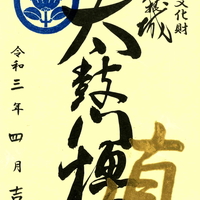 文化財
根城
太鼓門櫓
令和三年四月吉